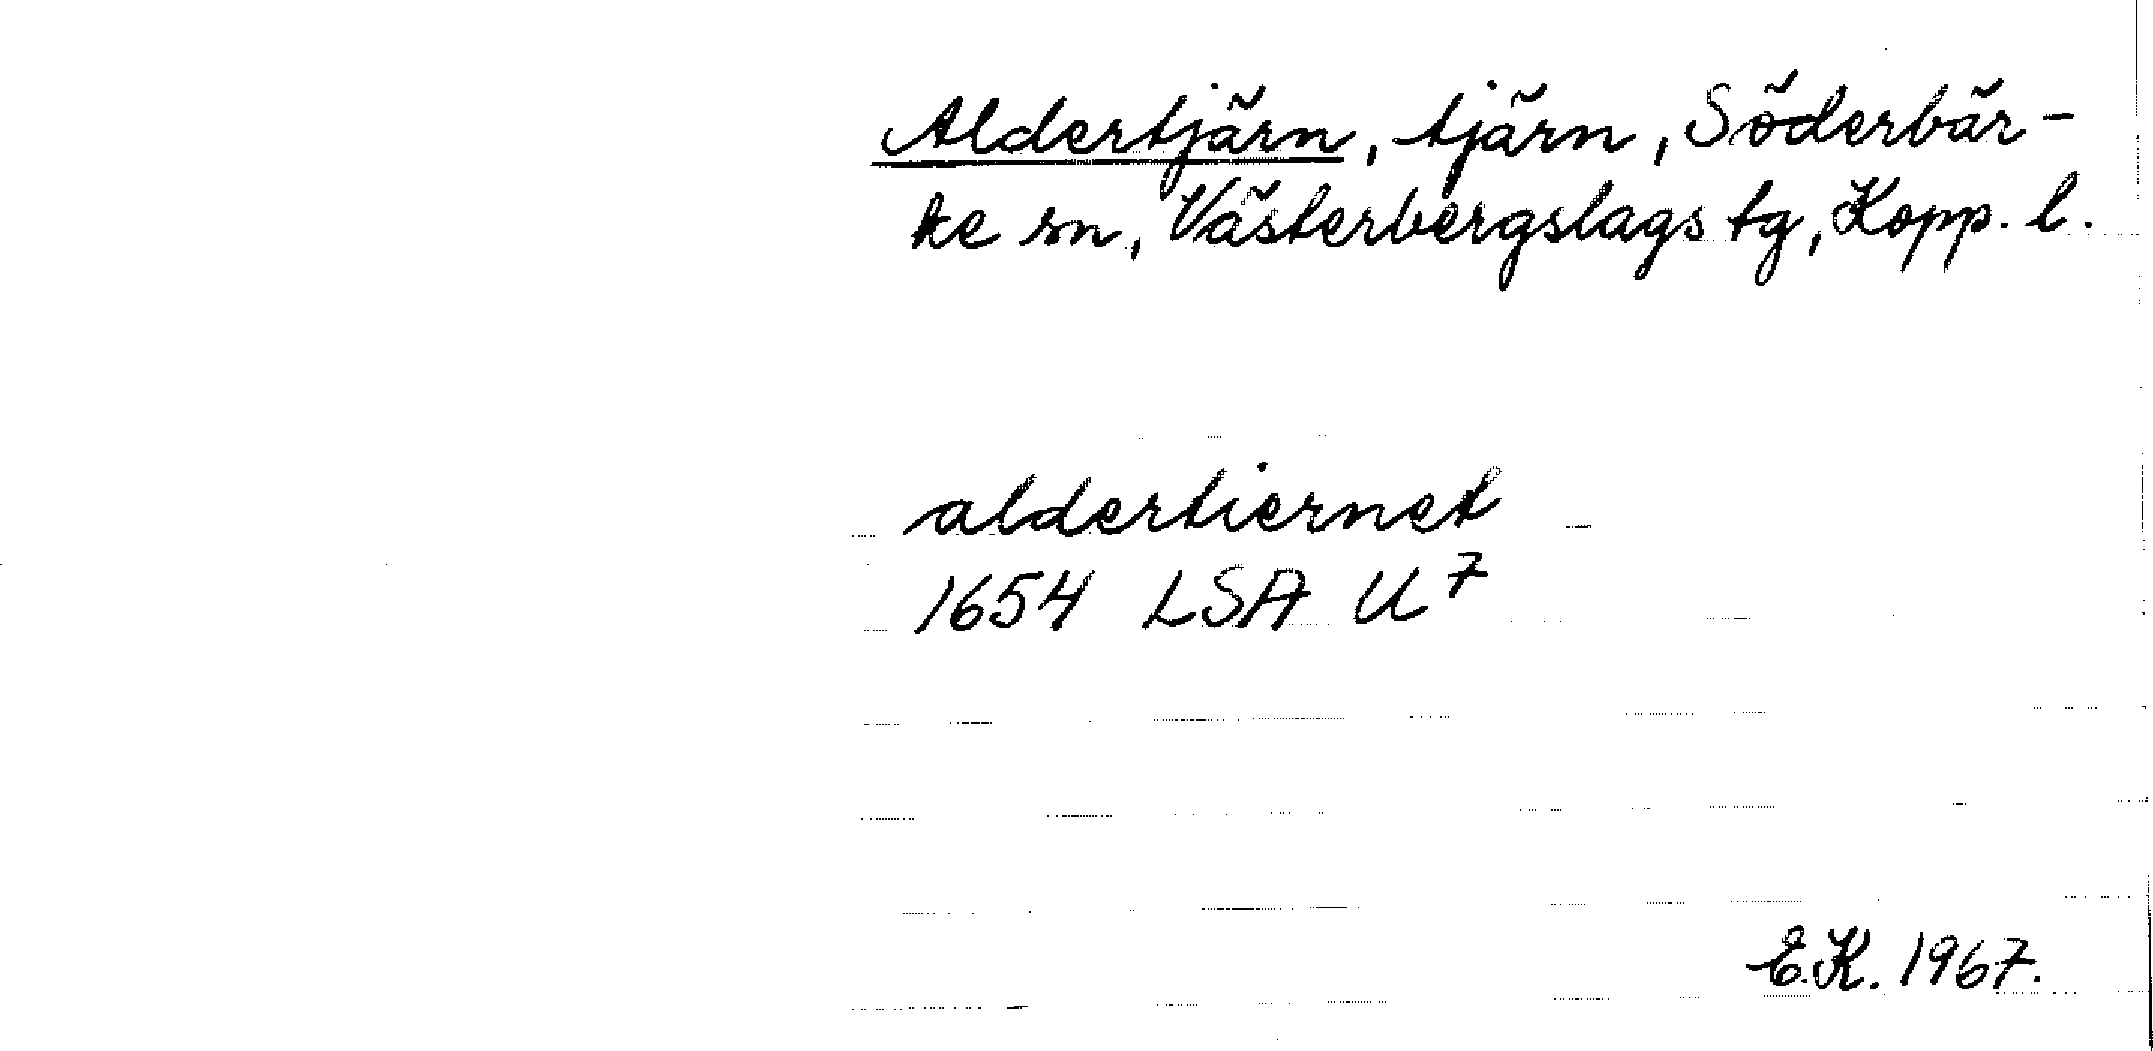 Aldertjärn, tjärn, Söderbär-
ke sn, Västerbergslags tg, Kopp. l.
aldertiernet
1654 LSA U7
E.K. 1967.